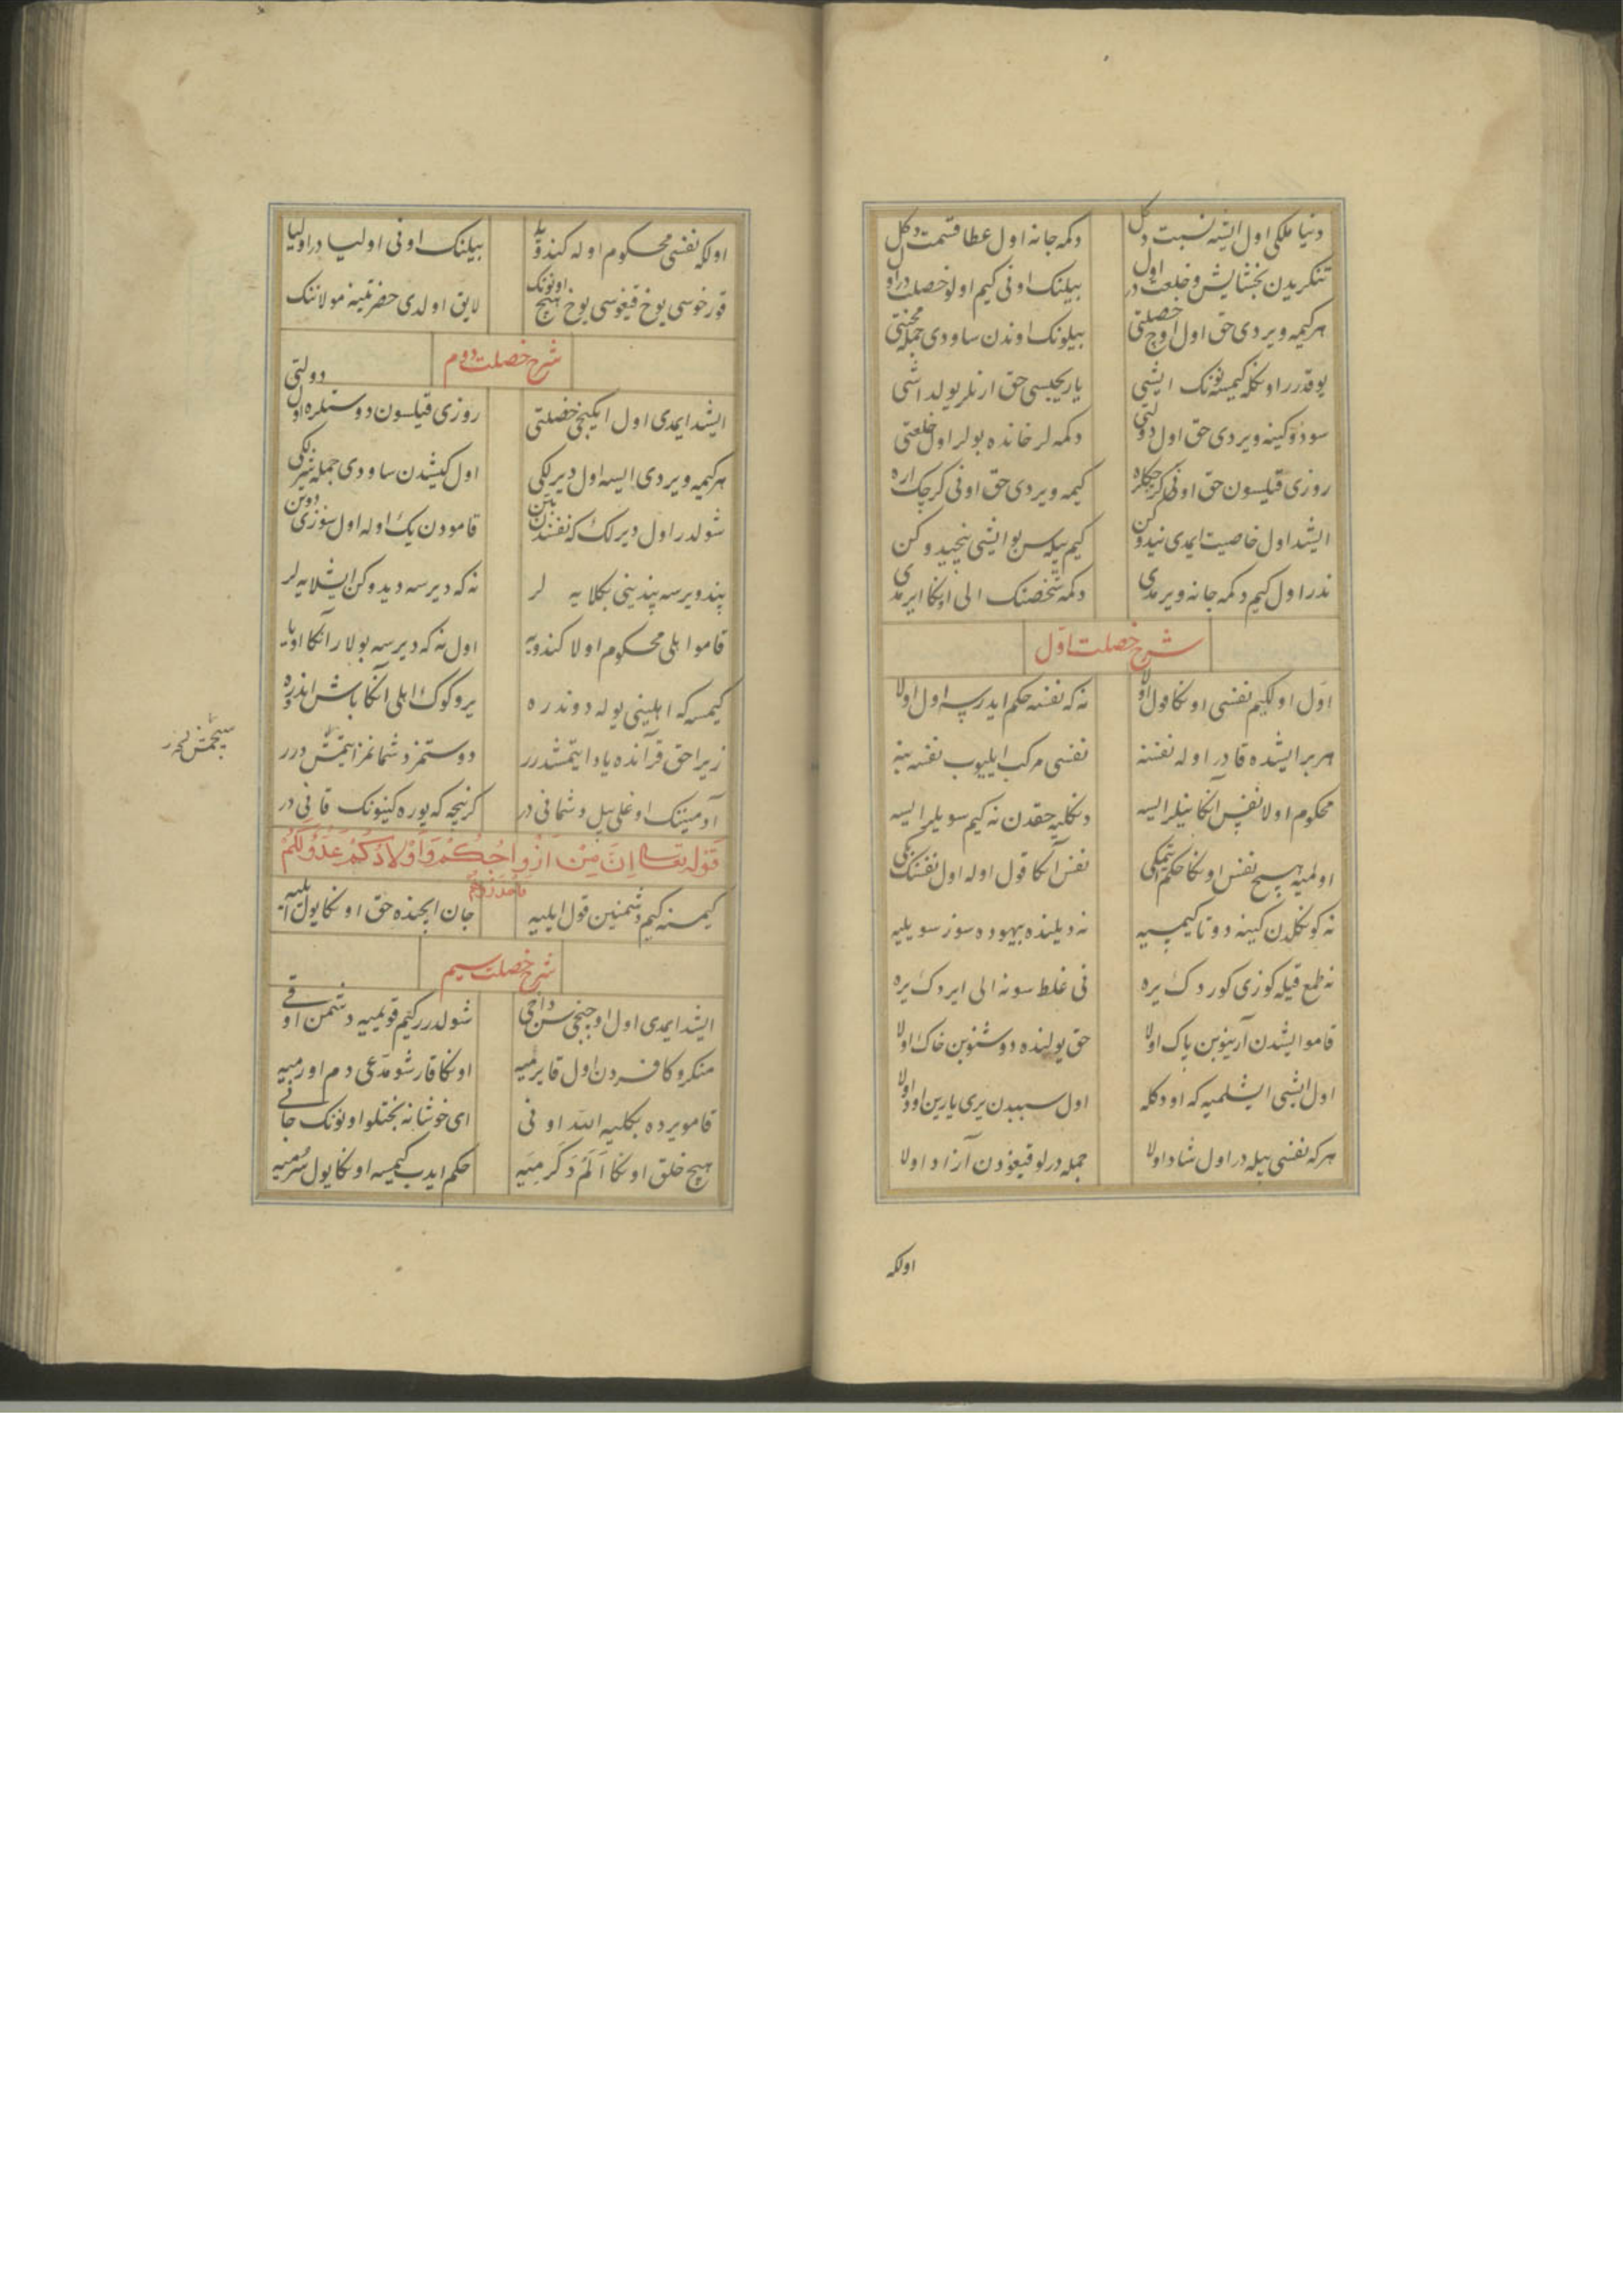 دنیا ملکی اول ایشه نسبت دکل دکمه جانه اول عطا قسمت دکل
تنکریدن بخشایش و خلعت در اول بیلنک اونی کیم اولو خصلت در اول
هر کیمه ویردی حق اول اوچ خصلتی بیلونک اوندن ساودی جمله محنتی
یوقدرر اونکله کیمسه نونک ایشی یاریجیسی حق ارنلر یولداشی
سودوکینه ویردی حق اول دولتی دکمه لر خانده بولر اول خلعتی
روزی قیلسون حق اونی کرچکلره کیمه ویردی حق اونی کرچک اره
ایشد اول خاصیت ایمدی نیدوکن کیم بیله سن بو ایشی نیجیدوکن
ندر اول کیم دکمه جانه ویرمدی دکمه شخصنک الی اونکا ایرمدی
شرح خصلت اول
اول اولکیم نفسی اونکا قول اولا نه که نفسه حکم ایدرسه اول اولا
هر بر ایشده قادر اوله نفسنه نفسی مرکب ایلیوب نفسه بنه
محکوم اولا نفس انکا نیلر ایسه دنکلیه حقدن نه کیم سویلر ایسه
اولمیه هیچ نفس اونکا حکم اتمکی نفس آنکا قول اوله اول نفسنک بکی
نه کونکلدن کینه دوتا کیمسیه نه دیلنده بیهوده سوز سویلیه
نه طمع قیله کوزی کوردک یره نی غلط سونه الی ایردک یره
قامو ایشدن آرینوبن پاک اولا حق یولنده دوشنوبن خاک اولا
اول ایشی ایشلمیه که اودکله اول سببدن یری یارین اود اولا
هر که نفسی بیله در اول شاد اولا جمله درلو قیغودن آزاد اولا
اولکه
اولکه نفسی محکوم اوله کندویه بیلنک اونی اولیا در اولیا
قورخوسی یوخ قیغوسی یوخ هیچ اونونک لایق اولدی حضرتینه مولاننک
شرح خصلت دوم
ایشد ایمدی اول ایکنجی خصلتی روزی قیلسون دوستلره اول دولتی
هر کیمه ویردی ایسه اول دیرلکی اول کیشدن ساودی جمله شرلکی
شولدرر اول دیرلک که نفسندن قامودن یک اوله اول سوزی
پند ویرسه پندینی بکلایه لر نه که دیرسه دیدوکن ایشلایه لر
قامو اهلی محکوم اولا کندویه اول نه که دیرسه بولار آنکا اویا
کیمسه که اهلینی یوله دوندره یر و کوک اهلی آنکا باش ایندره
زیرا حق قرآنده یاد ایتمشدرر دوستمز دشمانمز ایتمش درر
آدمینک اوغلی بیل دشمانی در کرنیجه که یوره کینونک قانی در
قوله تعالی اِنَّ مِنْ اَزْواجِكُمْ وَاَوْلادِكُمْ عَدُوًّا لَكُمْ
فَاحْذَرُوهُمْ
کیمسنه کیم دشمنین قول ایلیه جان ایچنده حق اونکا یول ایلیه
شرح خصلت سیم
ایشد ایمدی اول اوچنجی سن داخی شولدرر کیم قویمیه دشمن اوقی
منکر و کافردن اول قایرمیه اونکا قارشو مدعی دم اورمیه
قامو یرده بکلیه الله اونی ای خوشا نه بختلو اونونک جانی
هیچ خلق اونکا اَلَم دَکُرمیه حکم ایدب کیمسه اونکا یول سُرمیه